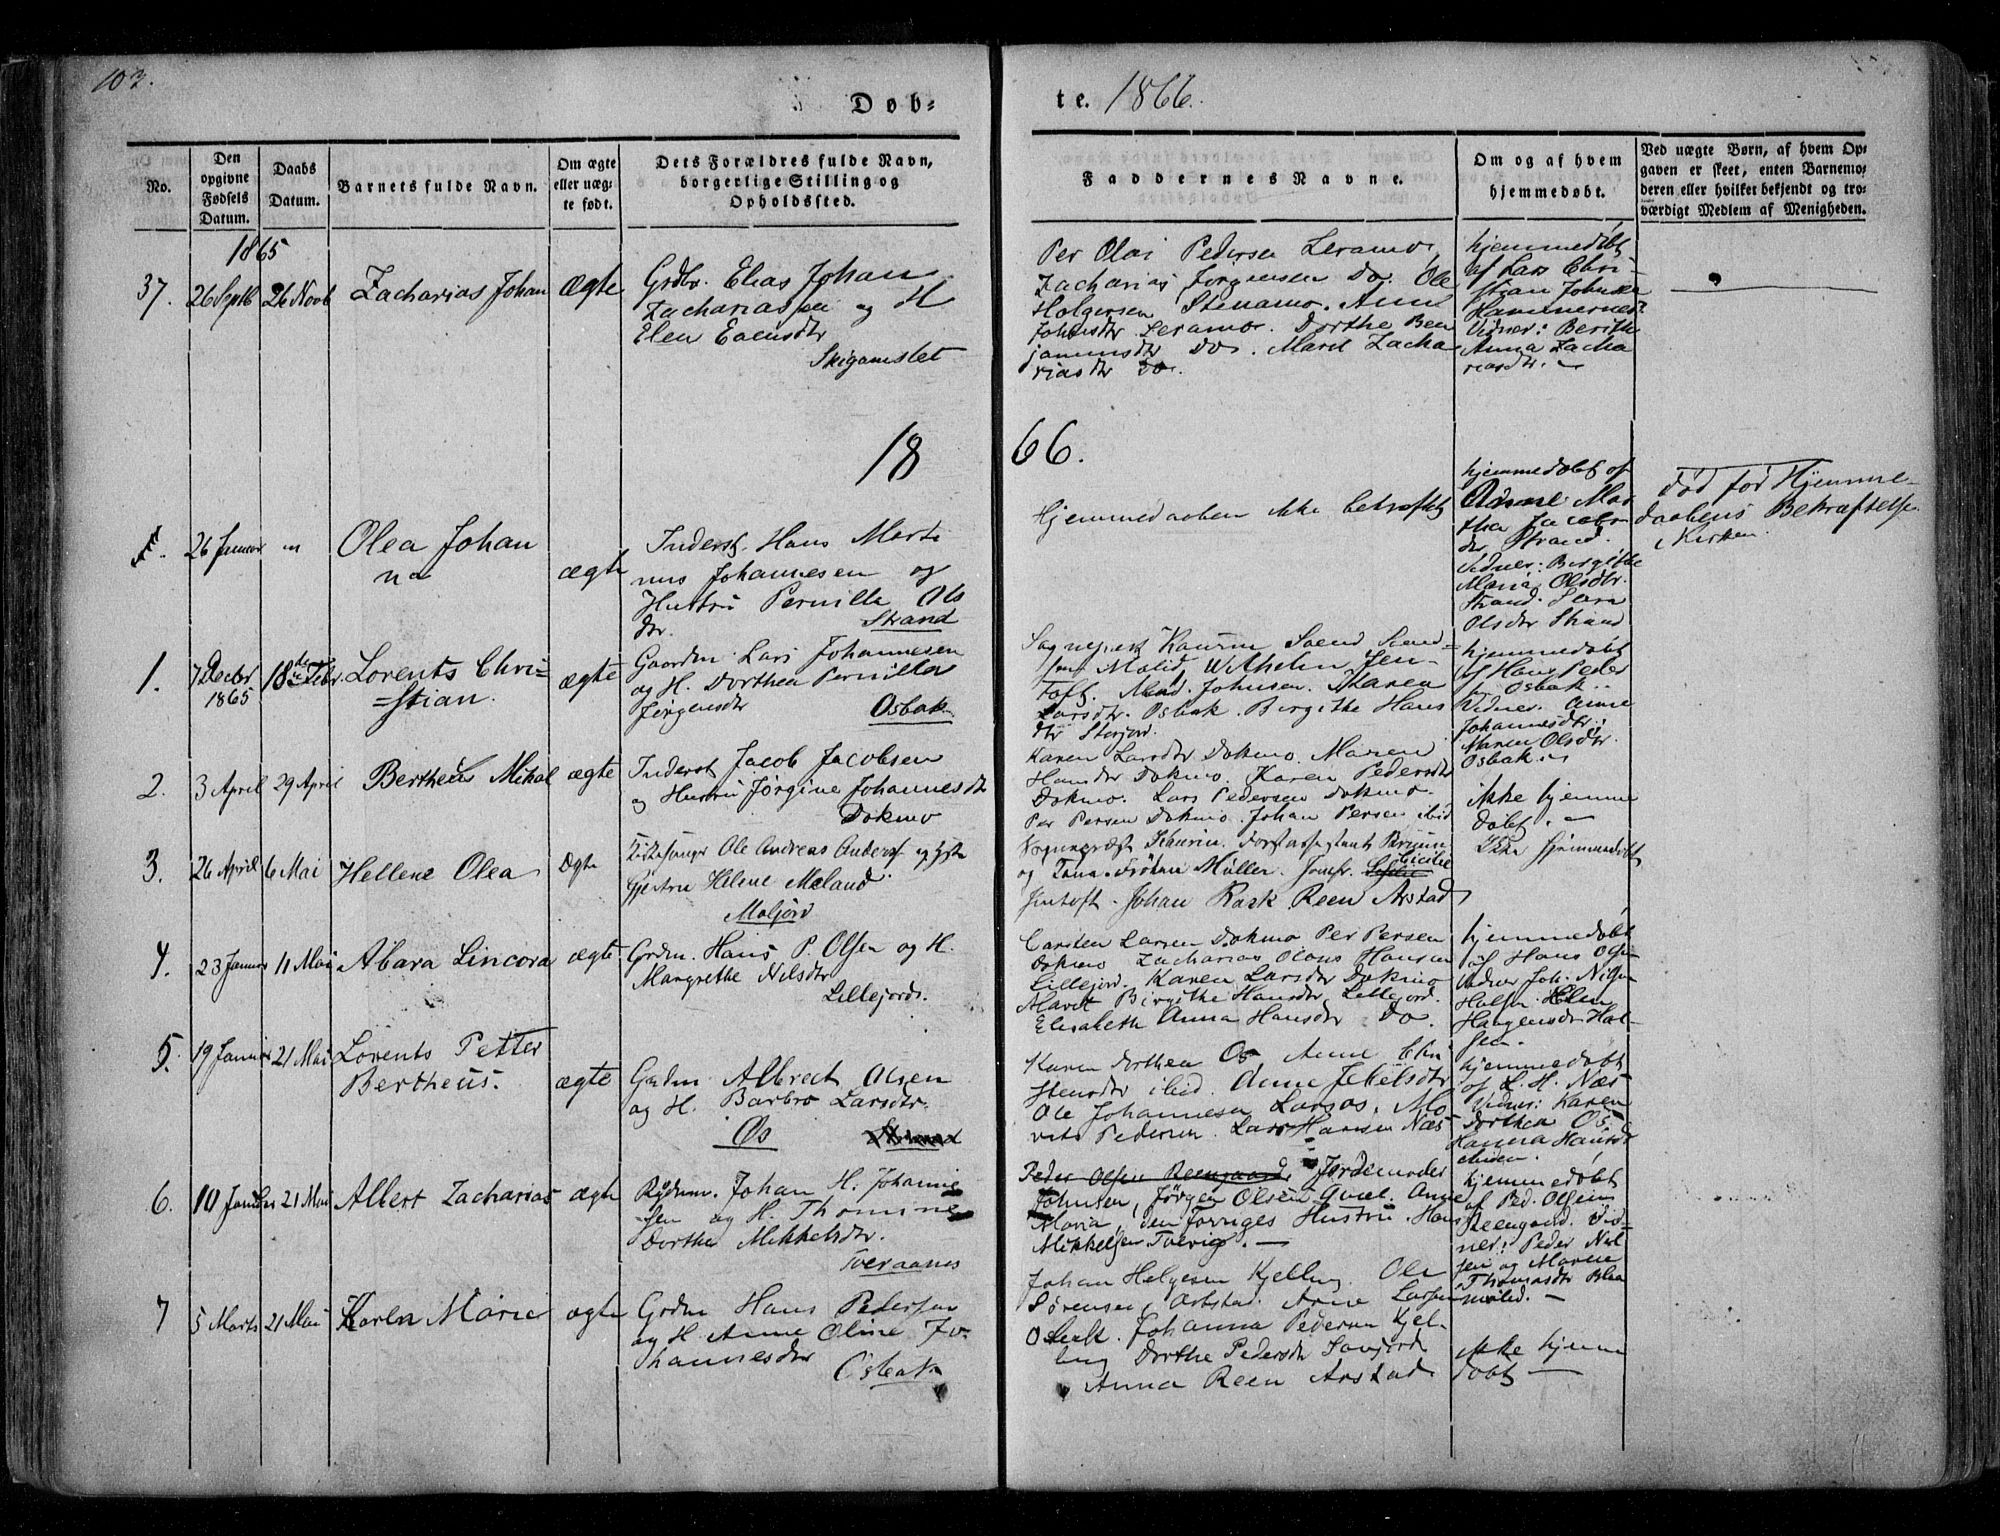 103.
Døb-
te. 1866.
No.
Den opgivne Fødsels Datum.
Daabs Datum.
Barnets fulde Navn.
Om ægte eller uæg-te født.
Dets Forældres fulde Navn, borgerlige Stilling og Opholdssted.
Faddernes Navne.
Om og af hvem hjemmedøbt.
Ved uægte Børn, af hvem Op-
gaven er skeet, enten Barnemo-
deren eller hvilket bekjendt og tro-
værdigt Medlem af Menigheden.
1865
37. 26 Septb 26 Novb Zacharias Johan ægte
Grdbr. Elias Johan
Zachariassen og H
Elen Evensdtr
Per Olai Pedersen Leramo,
Zacharias Jørgensen Do. Ole
Holgersen Stenamo. Anne
Johnsdtr Leramo. Dorthe Ben
jaminsdtr Do. Maret Zacha
riasdtr Do.
hjemmedøbt
af Lars Chri-
stian
Vidner: Berithe
Anna Zacha
riasdtr.
18
66.
26 Januar Olea Johan
na
ægte
Inderst. Hans Marti
nus Johannesen og
Hustru Pernilla Ols
dtr. Strand
Hjemmedaaben ikke bekræftet
hjemmedøbt af
Anne Mar
tha Jacobs
dtr Strand.
Vidner: Birgitte
Maria Olsdtr.
Strand. Sara
Olsdtr Strand
død før Hjemme-
daabens Bekræftelse
i Kirken.
1. 7 Decbr
1865
18de Febr. Lorents Chri-
stian.
ægte
Gaardm. Lars Johannesen
og H. Dorthea Pernilla
Jørgensdtr Osbak
Wilhelm Jen-
toft. Johnsen. Maren
Larsdtr. Osbak. Birgithe Hans
dtr Storjord.
hjemmedøbt
af Hans Peder
Osbak.
Vidner. Anne
Johannesdtr.
Maren Olsdtr.
Osbak.
2. 3 April 29 April Bertheus Mikal ægte
Inderst Jacob Jacobsen
og Hustru Jørgine Johannesdtr
Dokmo
Karen Larsdtr Dokmo. Maren
Hansdtr Dokmo. Karen Pedersdtr
Dokmo. Lars Pedersen Dokmo.
Per Persen Dokmo. Johan Persen ibid
ikke hjemme
døbt. —
3. 26 April 6 Mai Hellene Olea Ægte
Kirkesanger Ole Andreas Anders og
Hustru Helene Meland
Meljord
og Frøken Müller. Jomfr. Cecilie
Jentoft. Johan Rask Reen Arstad
Ikke hjemmedøbt
4. 23 Januar 11 Mai Abara Lincora ægte
Grdm. Hans P. Olsen og H.
Mangrethe Nilsdtr
Lillejord.
Carsten Larsen Dokmo Per Persen
Dokmo Zacharias Olaus Hansen
Lillejord. Karen Larsdtr Dokmo
Maret Birgithe Hansdtr Lillejord.
Elisabeth Anna Hansdtr Do.
hjemmedøbt
af Hans Olsen
Vidner Joh. Nilsen
5. 19 Januar 21 Mai Lorents Petter
Bertheus.
ægte
Grdm. Albrect Olsen
og H. Barbro Larsdtr.
Os
Karen Dorthea Os Anne Chri
stensdtr ibid. Anne Jekelsdtr
Ole Johannesen Larsos. Mo
rits Pedersen. Lars Hansen Næs
hjemmedøbt
af L. H. Næs
Vidner: Karen
Dorthea Os
Hanna Hansdtr
6. 10 Januar 21 Mai Albert Zacharias ægte
Rydm. Johan H. Johanne
sen og H. Thomine
Dorthe Mikkelsdtr.
Tveraanes
Peder Olsen Reengaard Jordemoder
Johnsen, Jørgen Olsen Qvæl. Anne
Maria, den Forriges Hustru. Hans
Mikkelsen Tvervig. —
hjemmedøbt
af Ped. Olsen
Reengaard. Vid-
ner: Peder Niel-
sen og Maren
Thomasdtr Blaa
7 5 Marts 21 Mai Karen Marie ægte
Grdm Hans Pedersen
og H. Anne Oline Jo-
hannesdtr
Osbak
Johan Helgesen Kjelling. Ole
Sørensen, Arstad. Arne Larsen
Osbak. Johanna Pedersen Kjel-
ling Dorthe Pedersdtr
Anna Reen Arstad
ikke hjemme
døbt —